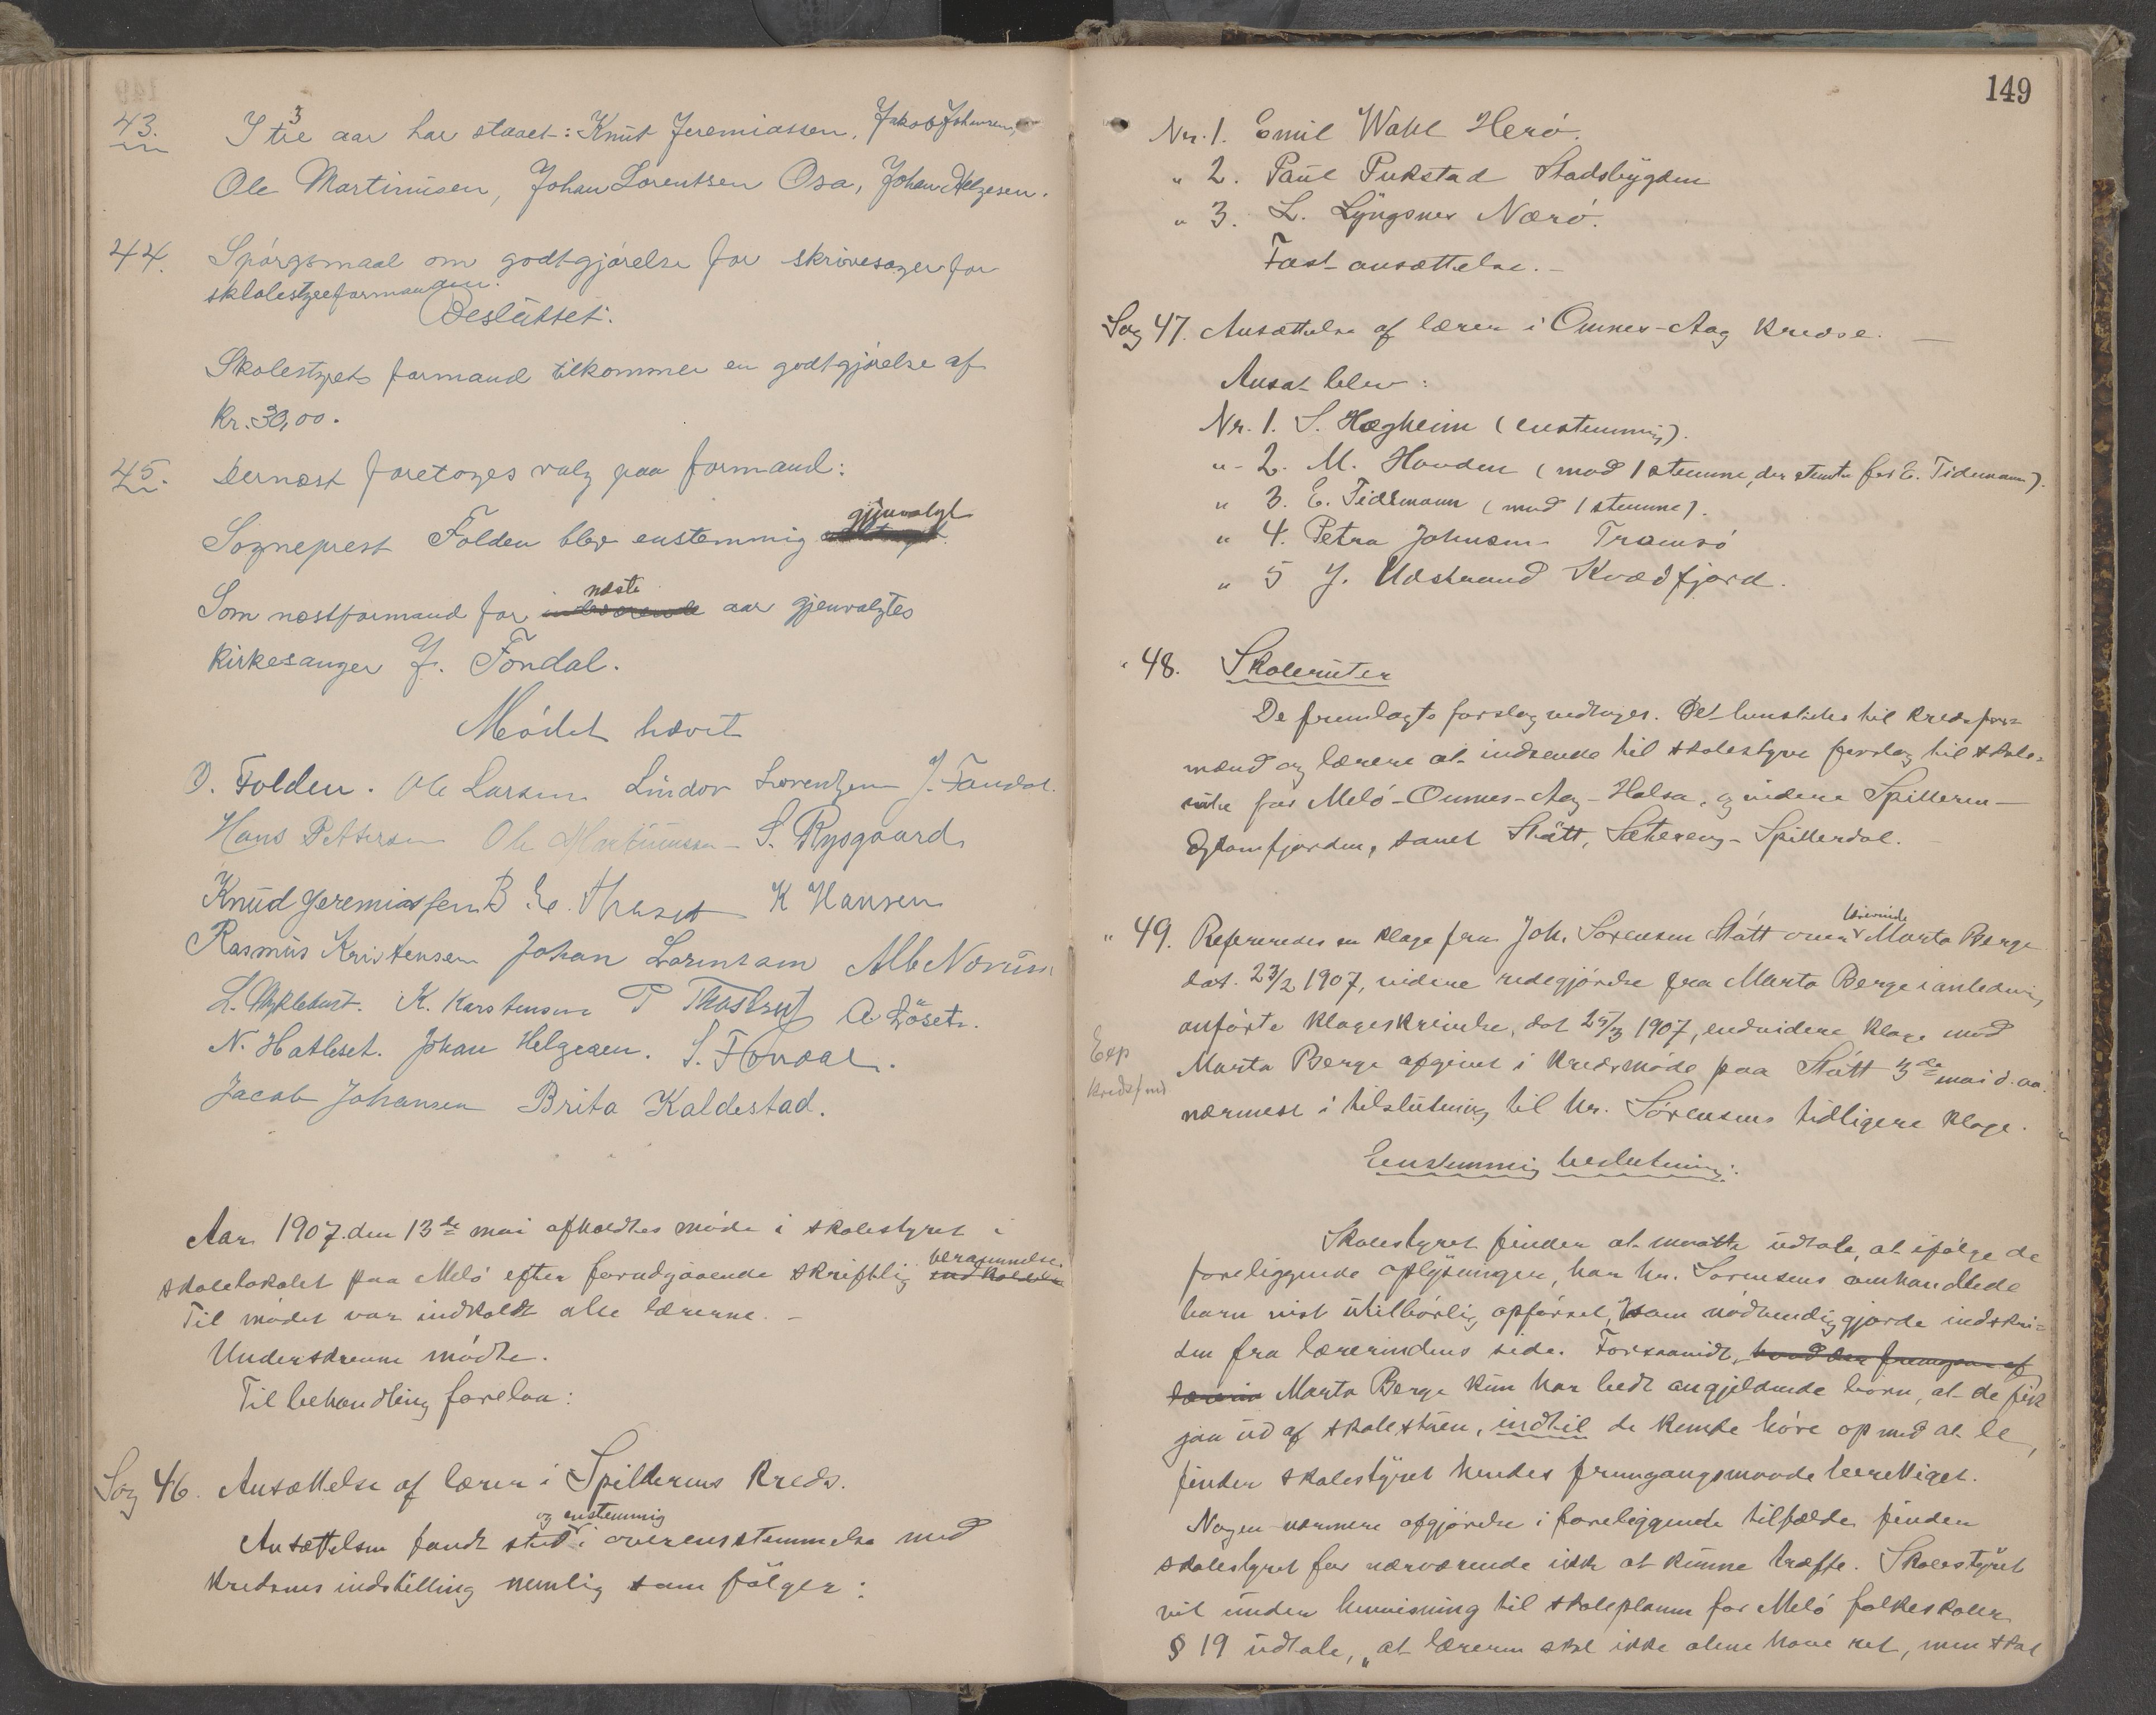 43. I tre 3 aar har staaet: Knut Jeremiassen, Jakob Johansen,
Ole Martinusen, Johan Lorentsen Osa, Johan Helgesen.
44. Spörgsmaal om godtgjörelse for skrivesager for
skolestyreformanden.
Besluttet:
Skolestyrets formand tilkommer en godtgjörelse af
Kr. 30,00.
45. Dernæst foretoges valg paa formand:
Sogneprest Folden blev enstemmig gjenvalgt
Som næstformand for indeværende næste aar gjenvalgtes
Kirkesanger J. Fondal.
Mödet hævet
O. Folden. Ole Larsen Lindor Lorentzen J. Fondal.
Hans Pettersen Ole Martinussen S. Rysgaard
Knud Jeremiassen B. K Hansen
Rasmus Kristensen Johan Lorentsen Alb Norum
L. Myklebust. K. Karstensen P A Löseth.
N. Hatleset. Johan Helgesen. S. Fondal.
Jacob Johansen Brita Kaldestad.
Aar 1907 den 13de mai afholdtes möde i skolestyret i
skolelokalet paa Melö efter forudgaaende skriftlig indkaldelse berammelse.
Til mödet var indkaldt alle lærerne. –
Underskrevne mödte.
Til behandling forelaa:
Sag 46. Ansættelse af lærer i Spilderens Kreds.
Ansættelsen fandt sted og enstemmig i overensstemmelse med
Kredsenes indstilling nemlig som fölger:
149
Nr. 1. Emil Wahl Herö.
" 2. Paul Pukstad Stadsbygden
" 3. L. Lyngsnes Nærö.
Fast ansættelse. –
Sag 47. Ansættelse af lærer i Ounes-Aag Kredse. –
Ansat blev:
Nr. 1. S. Hægheim (enstemmig).
" 2. M. Hovden (mod 1 stemme, der stemte for E. Tidemann).
" 3. E. Tidemann (mod 1 stemme).
" 4. Petra Johnsen Tromsö
" 5 J. Udstrand Kvædfjord.
" 48. Skoleruter
De fremlagte forslag vedtages. Det henstilles til Kredsfor=
mænd og lærere at indsende til skolestyre forslag til skole=
rute for Melö-Ounes-Aag-Halsa, og videre Spilderen –
Eglomfjorden, samt Stött, Sætereng-Spilderdal. –
" 49. Refereredes en klage fra Joh. Sörensen Stött over lærerinde Marta Berge
dat. 23/2 1907, videre redegjörelse fra Marta Berge i anledning
anförte klageskrivelse, dat 25/3 1907, endvidere klage mod
Marta Berge afgivet i Kredsmöde paa Stött 3de mai d. aa.
nærmest i tilslutning til hr. Sörensens tidligere klage.
Exp
Kredsfmd.
Eenstemmig beslutning:
Skolestyret finder at maatte udtale, at ifölge de
foreliggende oplysninger, har hr. Sörensens omhandlede
barn vist utilbörlig opförsel, som nödvendiggjorde indskri=
den fra lærerindens side. Forsaavidt, hvad der fremgaar af
lærerin Marta Berge kun har bedt angjeldende börn, at de fik
gaa ud af skolestuen, indtil de kunde höre op med at le,
finder skolestyret hendes fremgangsmaade berettiget.
Nogen nærmere afgjörelse i foreliggende tilfælde finder
skolestyret for nærværende ikke at kunne træffe. Skolestyret
vil under henvisning til skoleplanen for Melö folkeskoler
§ 19 udtale, "at læreren skal ikke alene have ret, men skal